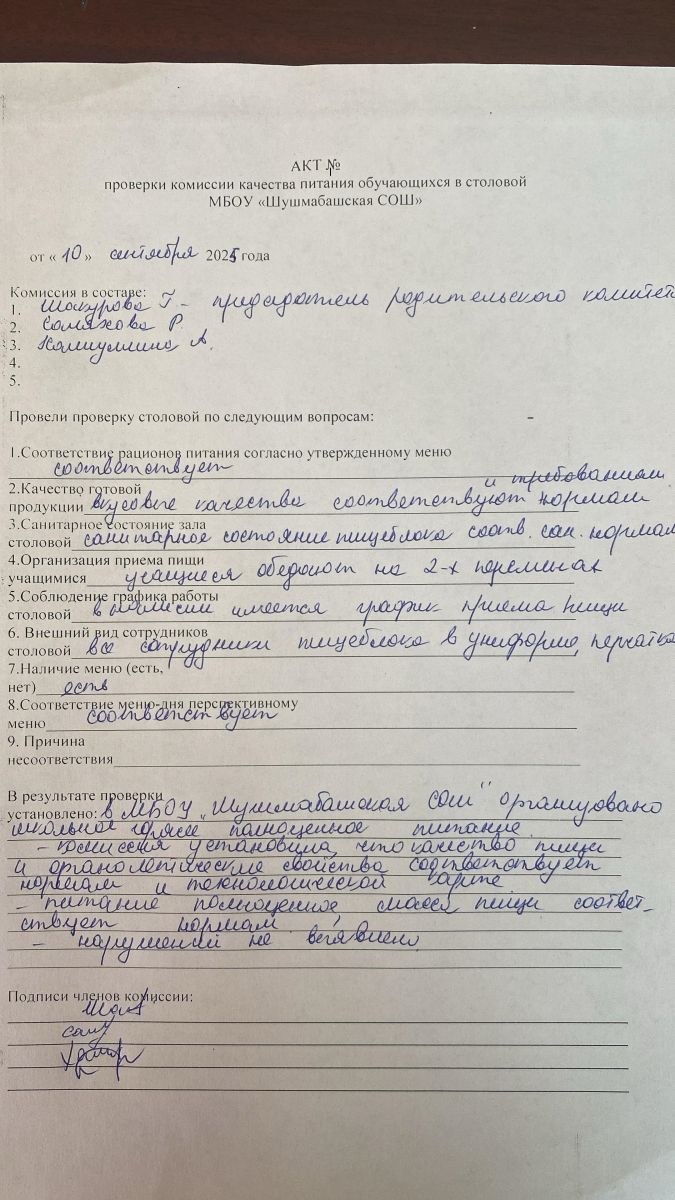 АКТ №
проверки комиссии качества питания обучающихся в столовой
МБОУ «Шушмабашская СОШ»
от « 10 » сентября 2025 года
Комиссия в составе:
1. Шакурова Г - председатель родительского комитета
2. Саляхова Р.
3. Халиуллина А.
4.
5.
Провели проверку столовой по следующим вопросам:
1.Соответствие рационов питания согласно утвержденному меню
соответствует
и требованиям
2.Качество готовой
продукции вкусовые качества соответствуют нормам
3.Санитарное состояние зала
столовой санитарное состояние пищеблока соотв. сан. нормам
4.Организация приема пищи
учащимися учащиеся обедают на 2-х переменах
5.Соблюдение графика работы
столовой в наличии имеется график приема пищи
6. Внешний вид сотрудников
столовой все сотрудники пищеблока в униформе, перчатка
7.Наличие меню (есть,
нет) есть
8.Соответствие меню-дня перспективному
меню соответствует
9. Причина
несоответствия
В результате проверки
установлено: в МБОУ „Шушмабашская СОШ" организовано
школьное горячее полноценное питание.
- комиссия установила, что качество пищи
и органолептические свойства соответствует
нормам и технологической карте
- питание полноценное, масса пищи соответ-
ствует нормам
- нарушений не выявлено.
Подписи членов комиссии: